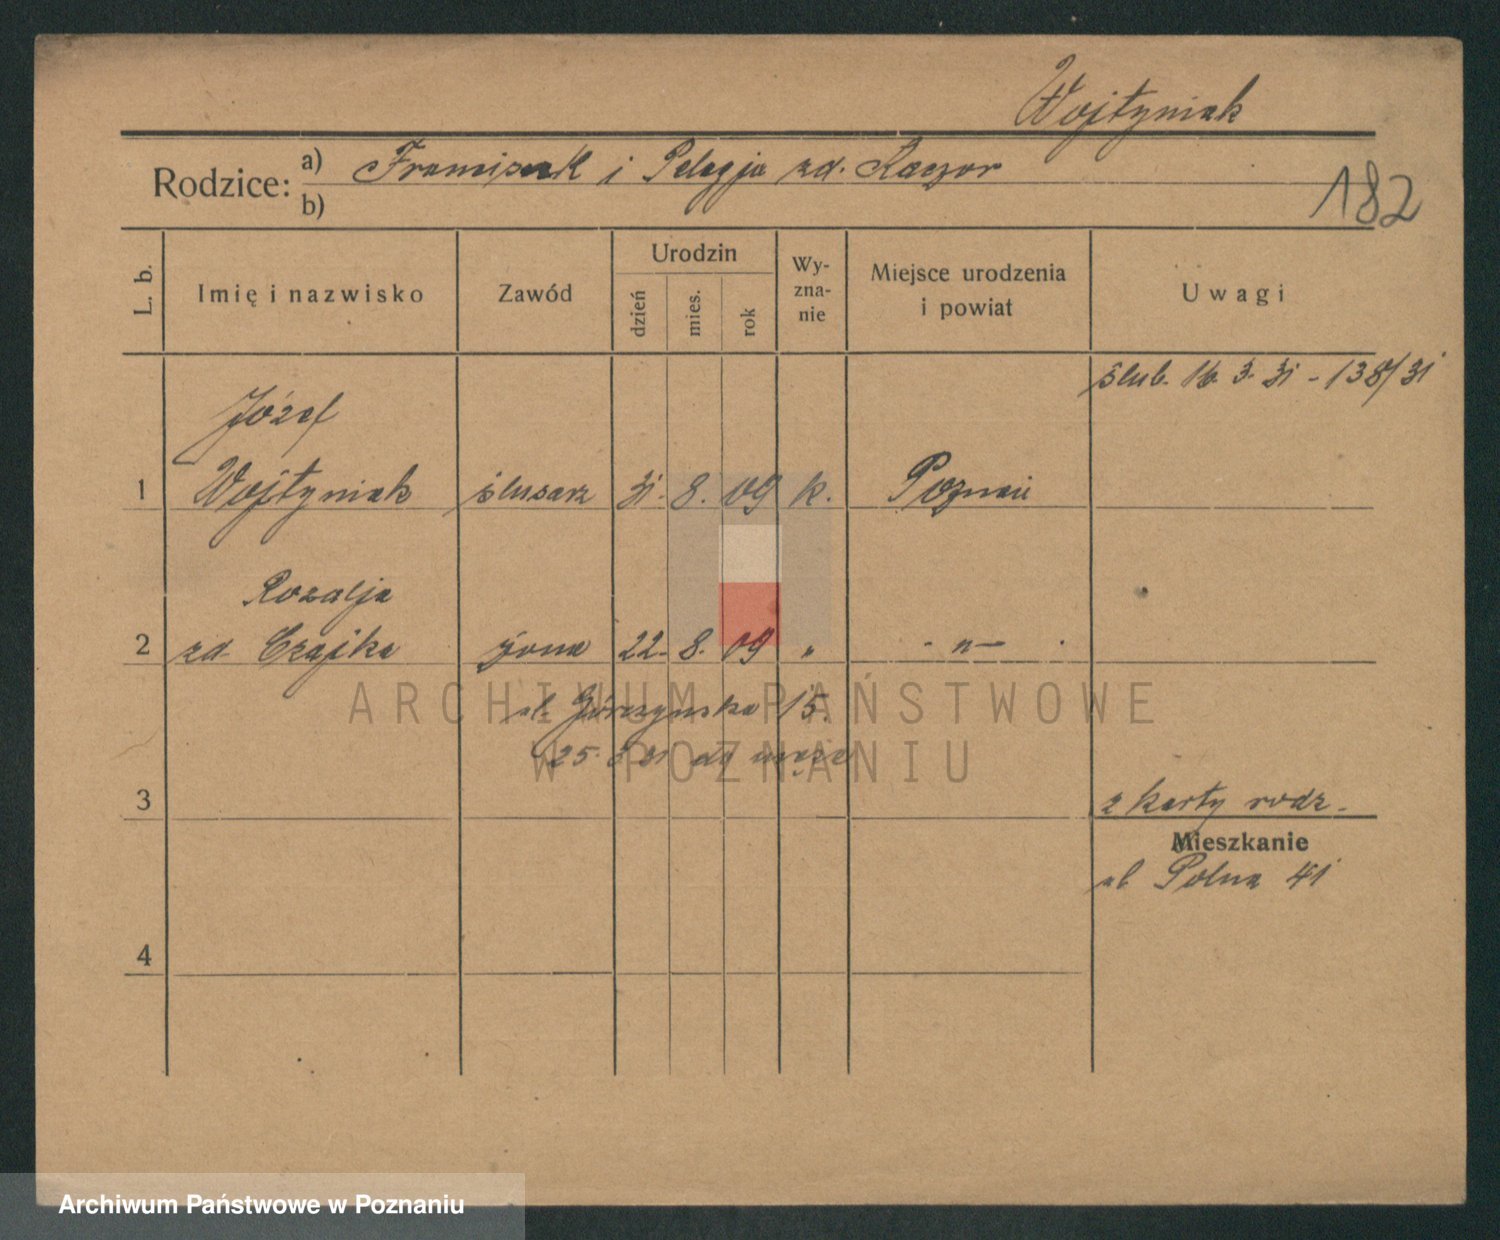 Wojtyniak
Rodzice: a) Franciszek i Pelagja zd. Kaczor
b)
182
L. b.
Imię i nazwisko
Zawód
Urodzin
dzień
mies.
rok
Wy-
zna-
nie
Miejsce urodzenia
i powiat
Uwagi
ślub. 16. 3. 31 - 138/31
Józef
1 Wojtyniak ślusarz 31. 8. 09 k. Poznań
Rozalja
2 zd. Czajka żona 22. 8. 09 " - " -
ul. Górczyńska 15.
25. 3 31 do męża
3
z karty rodz.
Mieszkanie
ul. Polna 41
4
ARCHIWUM PAŃSTWOWE
W POZNANIU
Archiwum Państwowe w Poznaniu